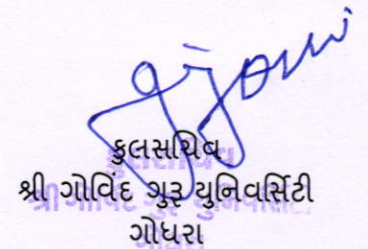 કુલસચિવ
શ્રી ગોવિંદ ગુરૂ યુનિવર્સિટી
ગોધરા